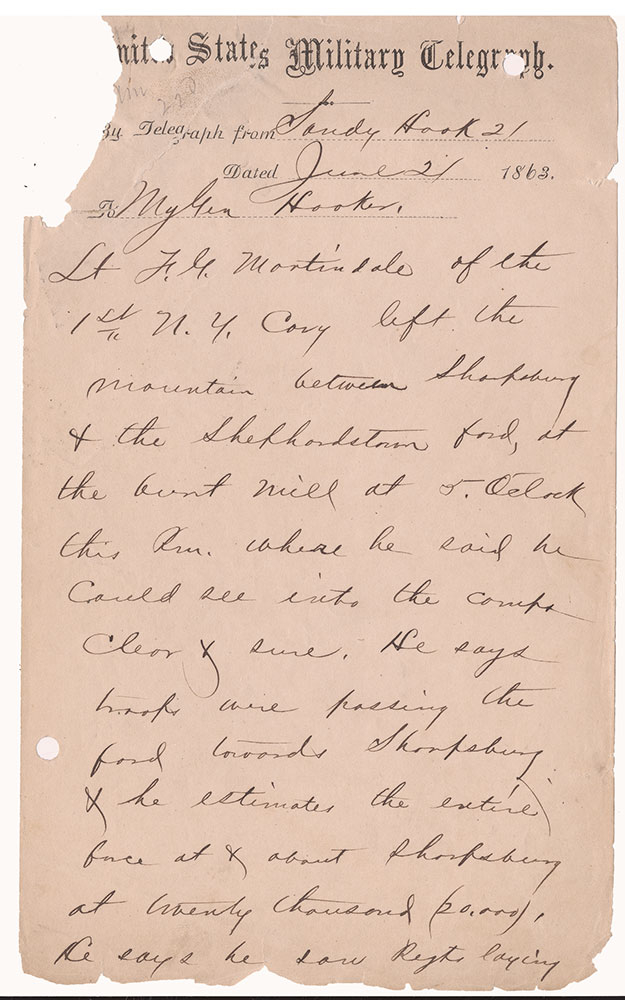 nited States Military Telegraph.
220
By Telegraph from Sandy Hook 21
Dated June 21 1863.
To My Gen Hooker.
Lt F. G. Martindale of the
1st N. Y. Cavy left the
mountain between Sharpsburg
& the Shephardstown ford, at
the burnt mill at 5. Oclock
this Pm. where he said he
Could see into the camps
Clear & sure. He says
troops were passing the
ford towards Sharpsburg
& he estimates the entire
force at & about Sharpsburg
at twenty thousand (20.000),
He says he saw Regts laying